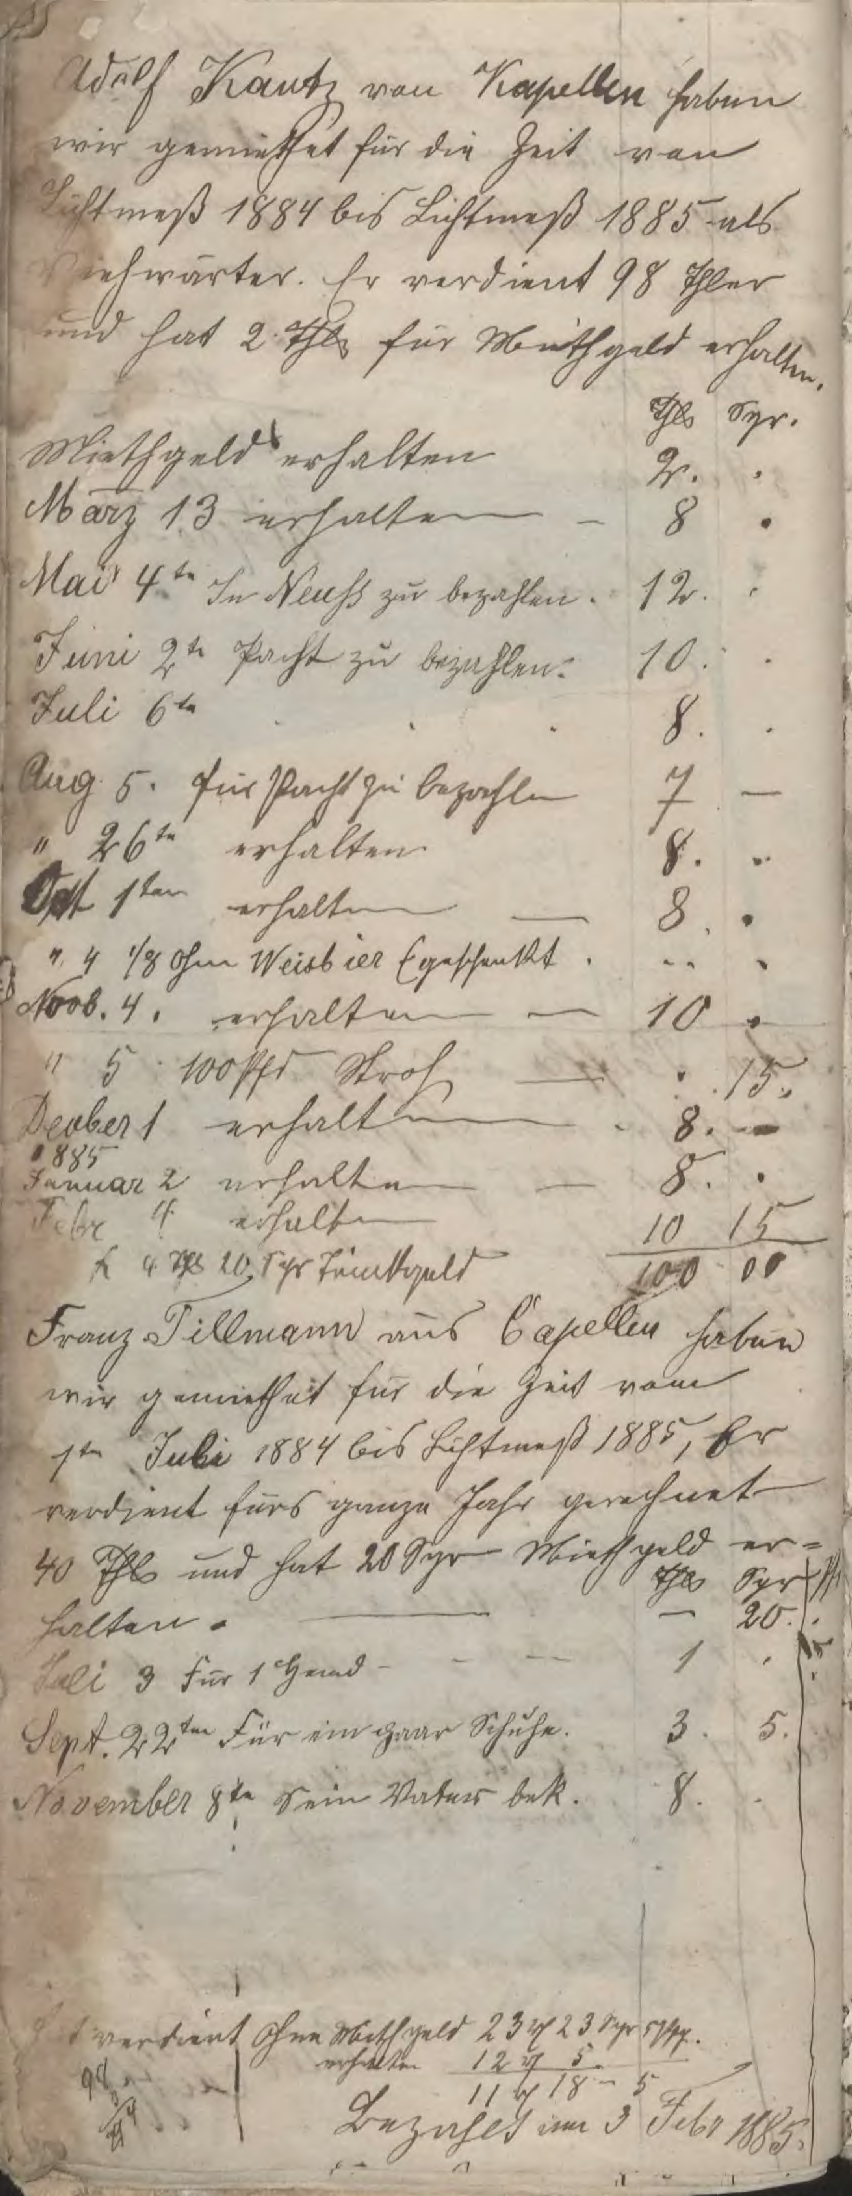 Adolf Kautz von Kapellen haben
wir gemiethet für die Zeit von
Lichtmeß 1884 bis Lichtmeß 1885 als
Viehwärter. Er verdient 98 Thler
und hat 2 Thlr für Miethgeld erhalten.
Thlr Sgr.
Miethgeld erhalten 2. .
März 13 erhalten – 8 .
Mai 4te In Neuss zu bezahlen. 12. .
Juni 2te Pacht zu bezahlen. 10. .
Juli 6te 8. .
Aug. 5. für Pacht zu bezahlen 7 —
" 26te erhalten 8. .
Oct 1ten erhalten — 8. .
" 4 1/8 Ohm Weisbier geschenkt . .. .
Novb. 4. erhalten — 10 .
" 5 100 Pfd Stroh — . 15.
Decber 1 erhalten . 8. —
1885
Januar 2 erhalten — 8. .
Febr 4 erhalten 10 15
4 Thlr 20 Sgr Trinkgeld 100 00
Franz Tillmann aus Capellen haben
wir gemiethet für die Zeit vom
1te Juli 1884 bis Lichtmeß 1885, Er
verdient fürs ganze Jahr gerechnet
40 Thlr und hat 20 Sgr Miethgeld er=
Thlr Sgr
halten. — — 20.
Juli 3 Für 1 Hemd - - — 1 .
Sept. 22ten Für ein paar Schuhe. 3. 5.
November 8te Sein Vater bek. 8. .
verdient ohne Miethgeld 23 23 Sgr
erhalten 12 5
11 18 – 5
98
Bezahlt am 3 Febr 1885.